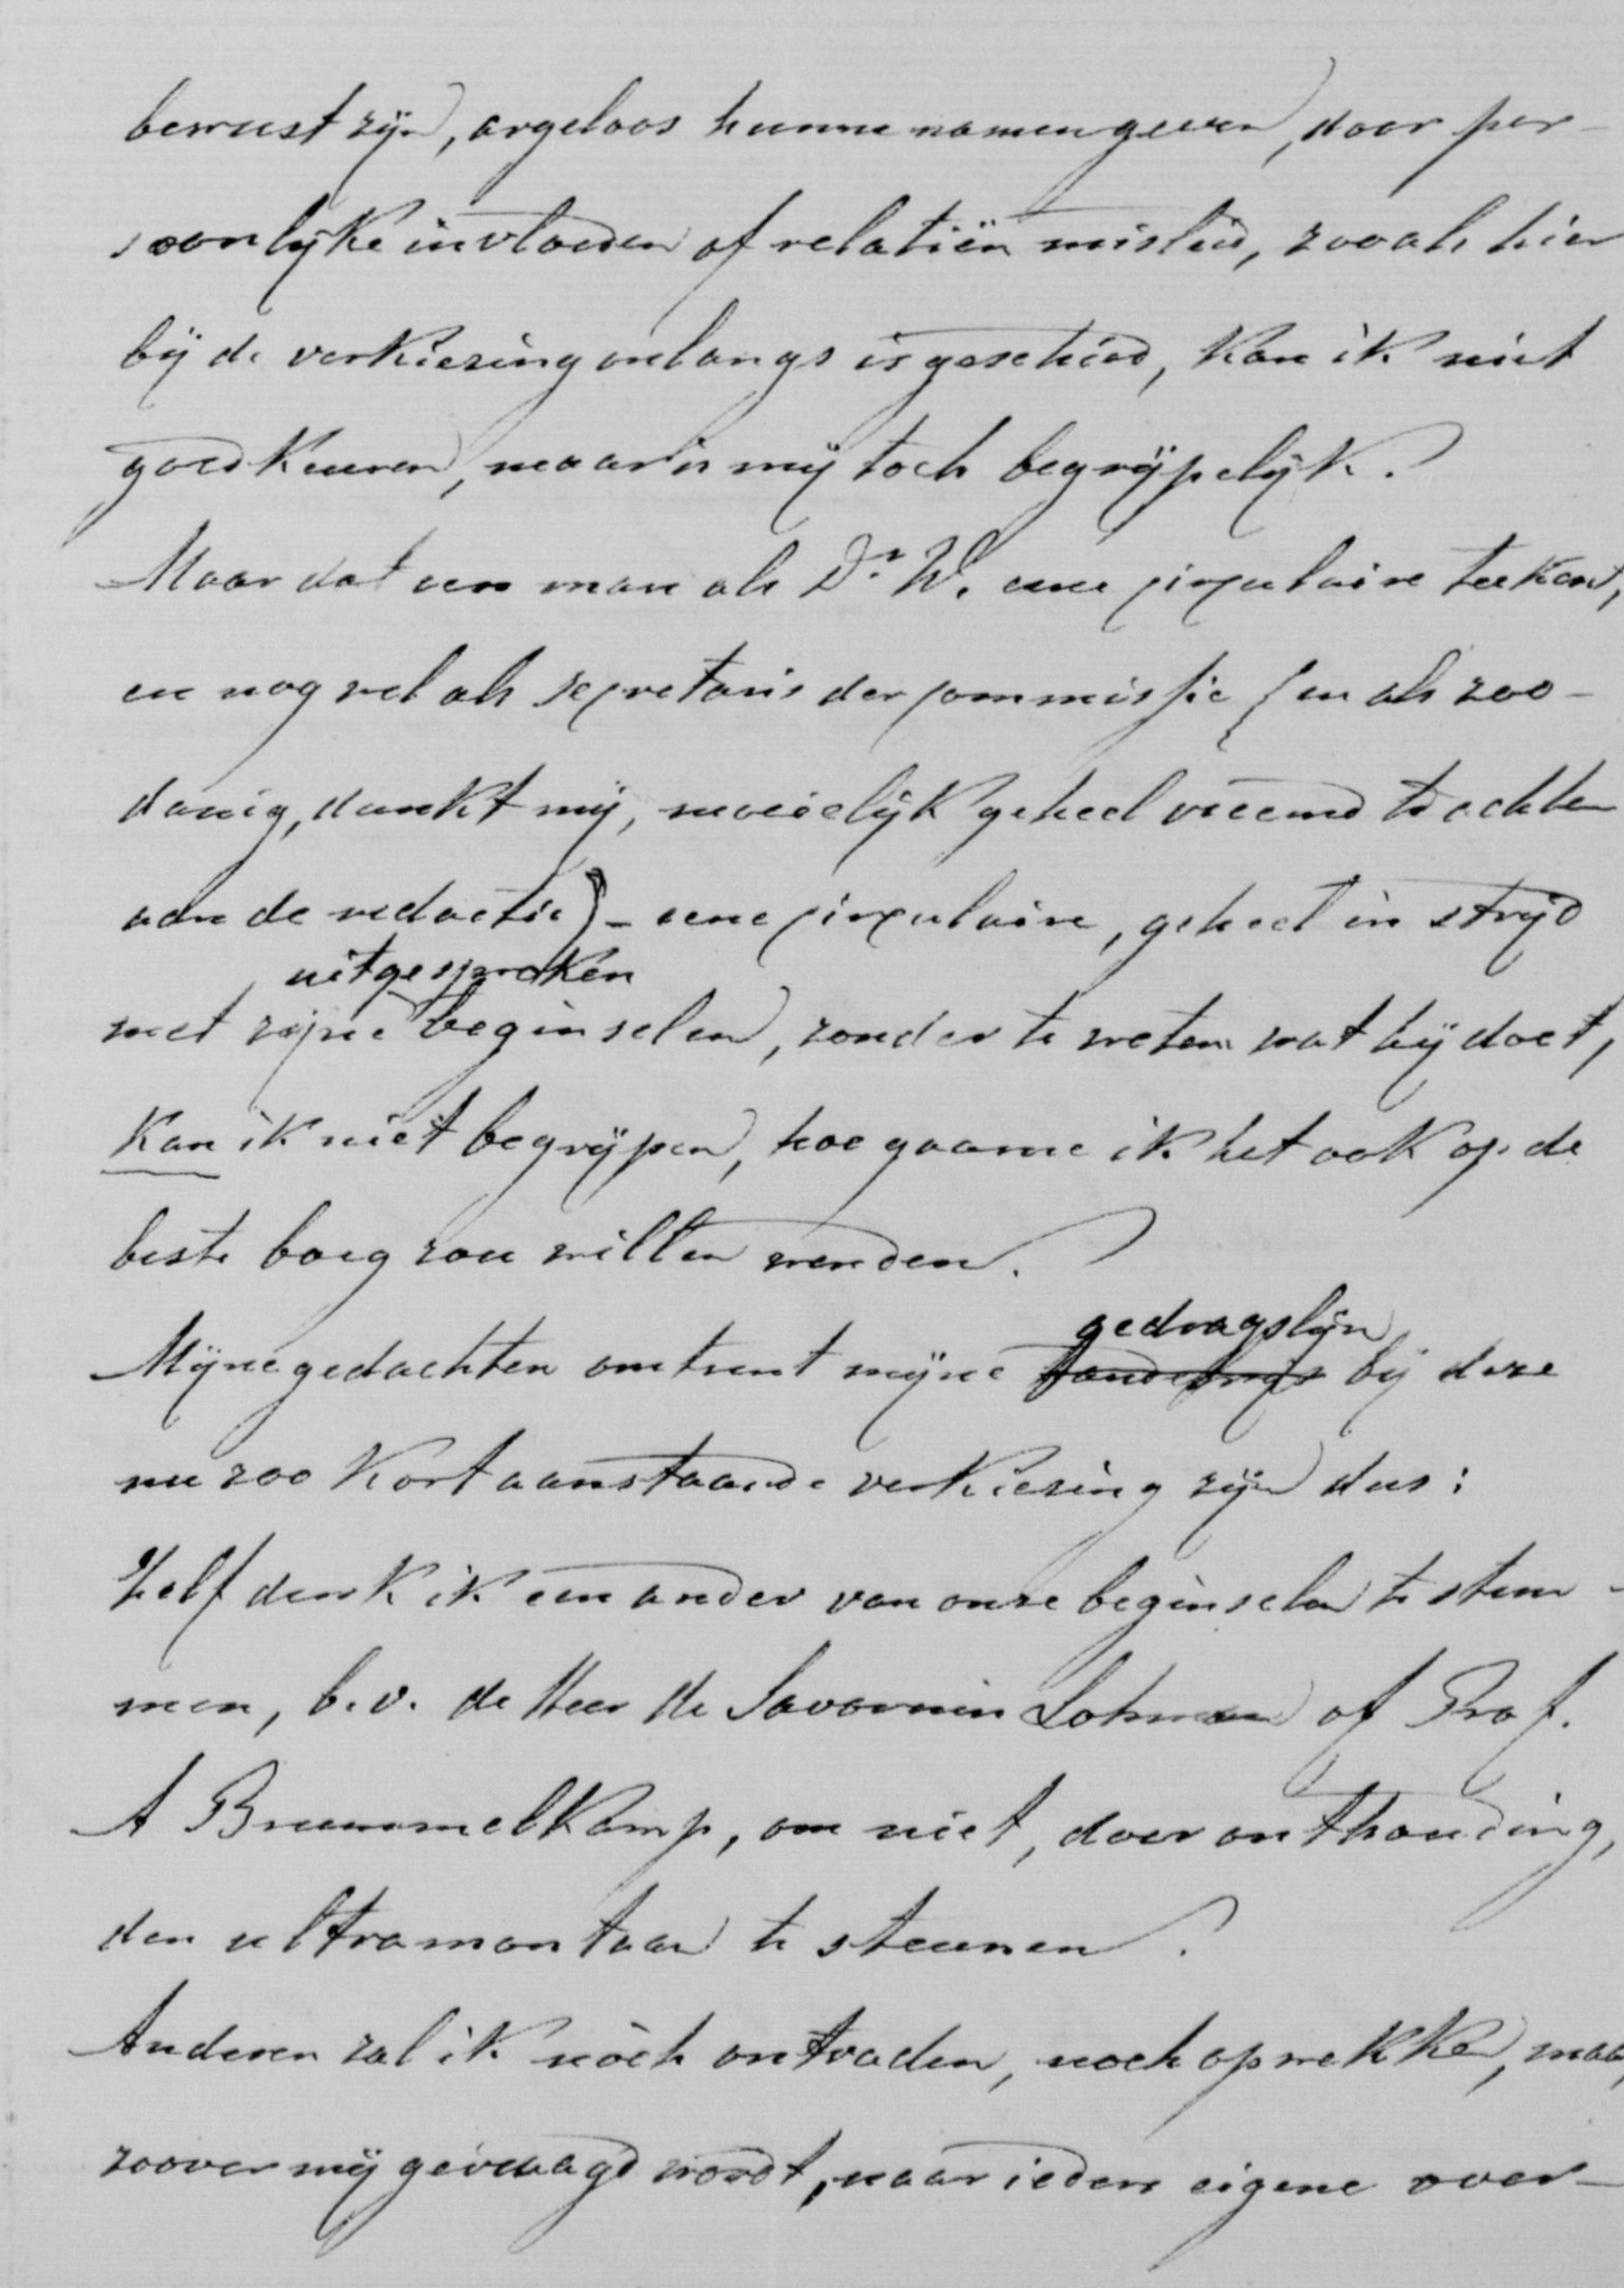 bewust zijn, argeloos hunne namen geven, door per-
soonlijke invloeden of relatiën misleid, zooals hier
bij de verkiezing onlangs is geschied, kan ik niet
goedkeuren, maar is mij toch begrijpelijk.
Maar dat een man als Dr. W. eene circulaire teekent,
en nog wel als secretaris der commissie (en als zoo-
danig, dunkt mij, moeielijk geheel vreemd te achten
aan de redactie) - eene circulaire, geheel in strijd
uitgesproken
met zijne beginselen, zonder te weten wat hij doet,
kan ik niet begrijpen, hoe gaarne ik het ook op de
beste boeg zou willen wenden.
gedragslijn
Mijne gedachten omtrent mijne handelwijs bij deze
nu zoo kort aanstaande verkiezing zijn dus:
Zelf denk ik een ander van onze beginselen te stem-
men, b.v. de Heer de Savornin Lohman of Prof.
A Brummelkamp, om niet, door onthouding,
den ultramontaan te steunen.
Anderen zal ik nòch ontraden, noch opwekken, maar,
zoover mij gevraagd wordt, naar ieders eigene over-